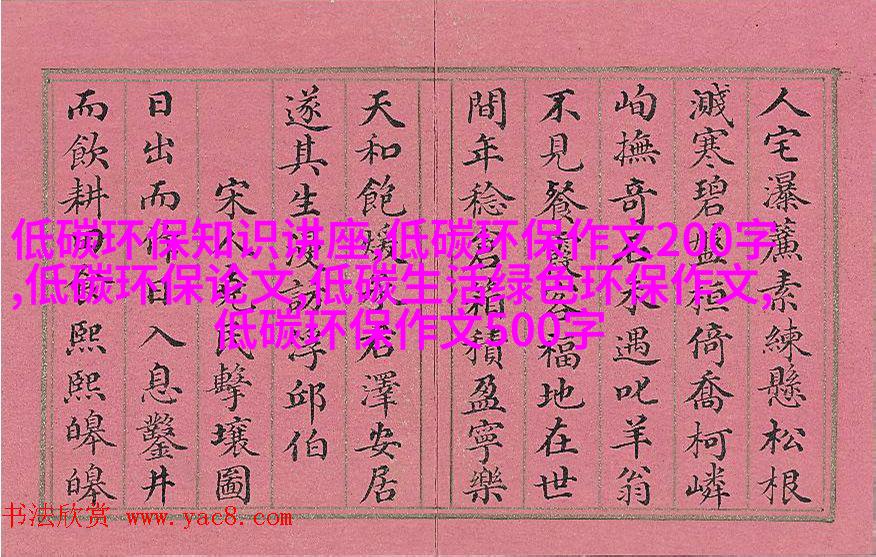 人宅瀑簾素練懸松根
濺寒碧盤桓倚喬柯嶙
峋撫奇石遇叱羊翁
不見餐霞福地在世
間年稔倉箱積盈寧樂
天和飽煖君澤安居
遂其生詠浮邱伯
宋人民擊壤圖
日出而作日入息鑿井
而飲耕田食熙熙皞皞
低碳环保知识讲座,低碳环保作文200字
,低碳环保论文,低碳生活绿色环保作文,
低碳环保作文500字
书法欣赏 www.yac8.com